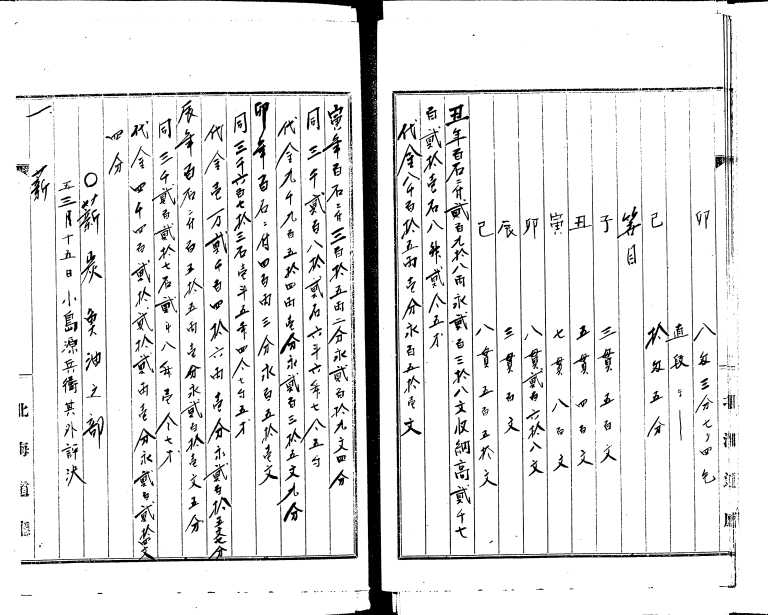 卯　八匁三分七ノ四毛
直段
巳　拾匁五分
箒目
子　三貫五百文
丑　五貫四百文
寅　七貫八百文
卯　八貫貳百六拾八文
辰　三貫百文
巳　八貫五百五拾文
丑年百石ニ付貳百九拾八両永貳百三拾八文収納高貳千七
百貳拾壱石八斗貳升五才
代金八千百拾五両壱分永百五拾壱文
北海道廳
寅年百石ニ付三百拾五両二分永貳百拾九文四分
同三千貳百八拾貳石六斗六升七八五勺
代金九千九百五拾四両壱分永貳百三拾五文九分
卯年百石ニ付四百両三分永百五拾壱文
同三千六百七拾三石壱斗五升四合七勺五才
代金壱万貳千百四拾六両壱分永貳百拾五文七分
辰年百石ニ付百五拾五両壱分永貳百拾壱文五分
同三千貳百貳拾七石貳斗八升壱合七才
代金四千四百貳拾貳両壱分永貳百貳拾文
四分
〇薪炭魚油之部
五三月十五日小島源兵衛其外評決
一　薪
北海道廳